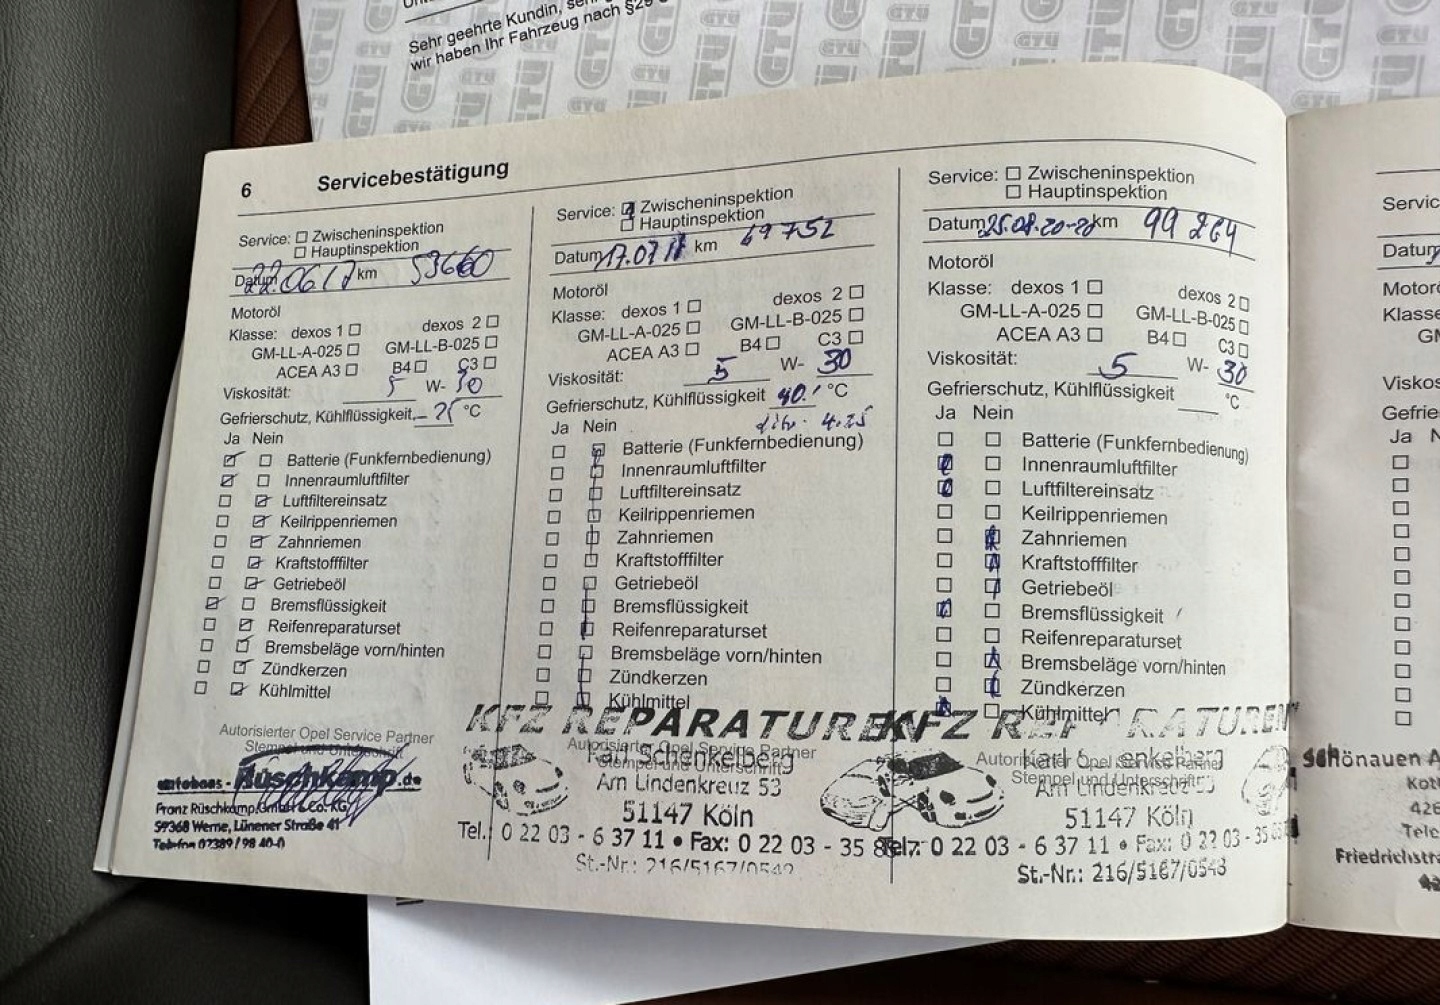 Sehr geehrte Kundin,
wir haben Ihr Fahrzeug nach §29
6 Servicebestätigung
Service: ☐ Zwischeninspektion
☐ Hauptinspektion
Datum 22.06.17 km 53660
Motoröl
Klasse: dexos 1 ☐ dexos 2 ☐
GM-LL-A-025 ☐ GM-LL-B-025 ☐
ACEA A3 ☐ B4 ☐ C3 ☐
Viskosität: 5 W- 30
Gefrierschutz, Kühlflüssigkeit °C
Ja Nein
☑ ☐ Batterie (Funkfernbedienung)
☑ ☐ Innenraumluftfilter
☐ ☑ Luftfiltereinsatz
☐ ☑ Keilrippenriemen
☐ ☑ Zahnriemen
☐ ☑ Kraftstofffilter
☐ ☑ Getriebeöl
☑ ☐ Bremsflüssigkeit
☐ ☑ Reifenreparaturset
☐ ☑ Bremsbeläge vorn/hinten
☐ ☑ Zündkerzen
☐ ☑ Kühlmittel
Autorisierter Opel Service Partner
Stempel und Unterschrift
autohaus - Rüschkamp.de
Franz Rüschkamp GmbH & Co. KG
59368 Werne, Lünener Straße 41
Telefon 02389 / 98 40-0
Service: ☑ Zwischeninspektion
☐ Hauptinspektion
Datum 17.07 km 69752
Motoröl
Klasse: dexos 1 ☐ dexos 2 ☐
GM-LL-A-025 ☐ GM-LL-B-025 ☐
ACEA A3 ☐ B4 ☐ C3 ☐
Viskosität: 5 W- 30
Gefrierschutz, Kühlflüssigkeit 40 °C
4.25
Ja Nein
☐ ☑ Batterie (Funkfernbedienung)
☐ ☑ Innenraumluftfilter
☐ ☑ Luftfiltereinsatz
☐ ☑ Keilrippenriemen
☐ ☑ Zahnriemen
☐ ☑ Kraftstofffilter
☐ ☑ Getriebeöl
☐ ☑ Bremsflüssigkeit
☐ ☑ Reifenreparaturset
☐ ☑ Bremsbeläge vorn/hinten
☐ ☑ Zündkerzen
☐ ☑ Kühlmittel
Autorisierter Opel Service Partner
Stempel und Unterschrift
KFZ REPARATUREN
Karl Schenkelberg
Am Lindenkreuz 53
51147 Köln
Tel.: 0 22 03 - 6 37 11 • Fax: 0 22 03 - 35
St.-Nr.: 216/5167/0543
Service: ☐ Zwischeninspektion
☐ Hauptinspektion
Datum 25.08.20 km 99 264
Motoröl
Klasse: dexos 1 ☐ dexos 2 ☐
GM-LL-A-025 ☐ GM-LL-B-025 ☐
ACEA A3 ☐ B4 ☐ C3 ☐
Viskosität: 5 W- 30
Gefrierschutz, Kühlflüssigkeit °C
Ja Nein
☐ ☐ Batterie (Funkfernbedienung)
☑ ☐ Innenraumluftfilter
☑ ☐ Luftfiltereinsatz
☐ ☐ Keilrippenriemen
☐ ☑ Zahnriemen
☐ ☑ Kraftstofffilter
☐ ☑ Getriebeöl
☑ ☐ Bremsflüssigkeit
☐ ☐ Reifenreparaturset
☐ ☑ Bremsbeläge vorn/hinten
☐ ☑ Zündkerzen
☑ ☐ Kühlmittel
Autorisierter Opel Service Partner
Stempel und Unterschrift
KFZ REPARATUREN
Karl Schenkelberg
Am Lindenkreuz 53
51147 Köln
Tel.: 0 22 03 - 6 37 11 • Fax: 0 22 03 - 35
St.-Nr.: 216/5167/0543
Servic
Datum
Motorö
Klasse
GM
Viskos
Gefrie
Ja N
Schönauen A
Kott
426
Tele
Friedrichstra